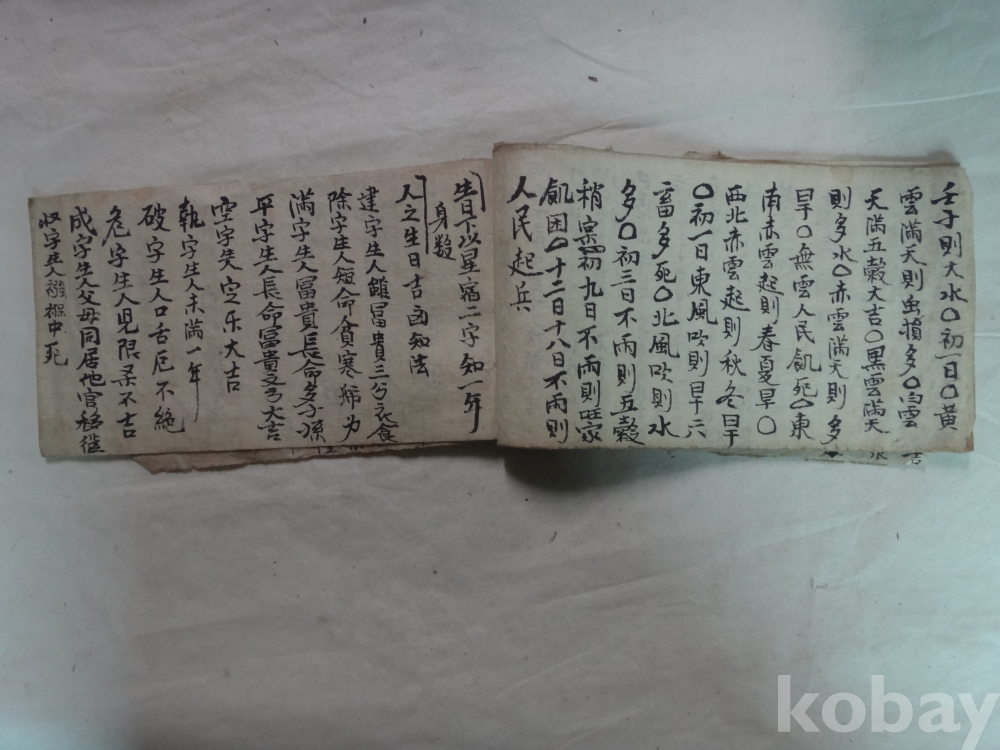 壬子則大水〇初一日〇黃
雲滿天則虫損多〇白雲
天滿五穀大吉〇黑雲滿天
則多水〇赤雲滿天則多
旱〇無雲人民飢死〇東
南赤雲起則春夏旱〇
西北赤雲起則秋冬旱
〇初一日東風吹則旱六
畜多死〇北風吹則水
多〇初三日不雨則五穀
稍 初九日不雨則 家
飢困〇十二日十八日不雨則
人民起兵
生日下以星宿二字知一年
身數
人之生日吉凶知法
建字生人雖冨貴三分衣食
除字生人短命貧寒歸为
滿字生人冨貴長命多子孫
平字生人長命冨貴 大吉
字 大吉
執字生人未滿一年
破字生人口舌厄不絶
危字生人見限 不吉
成字生人父母同居他官移徙
收字生人 中死
kobay